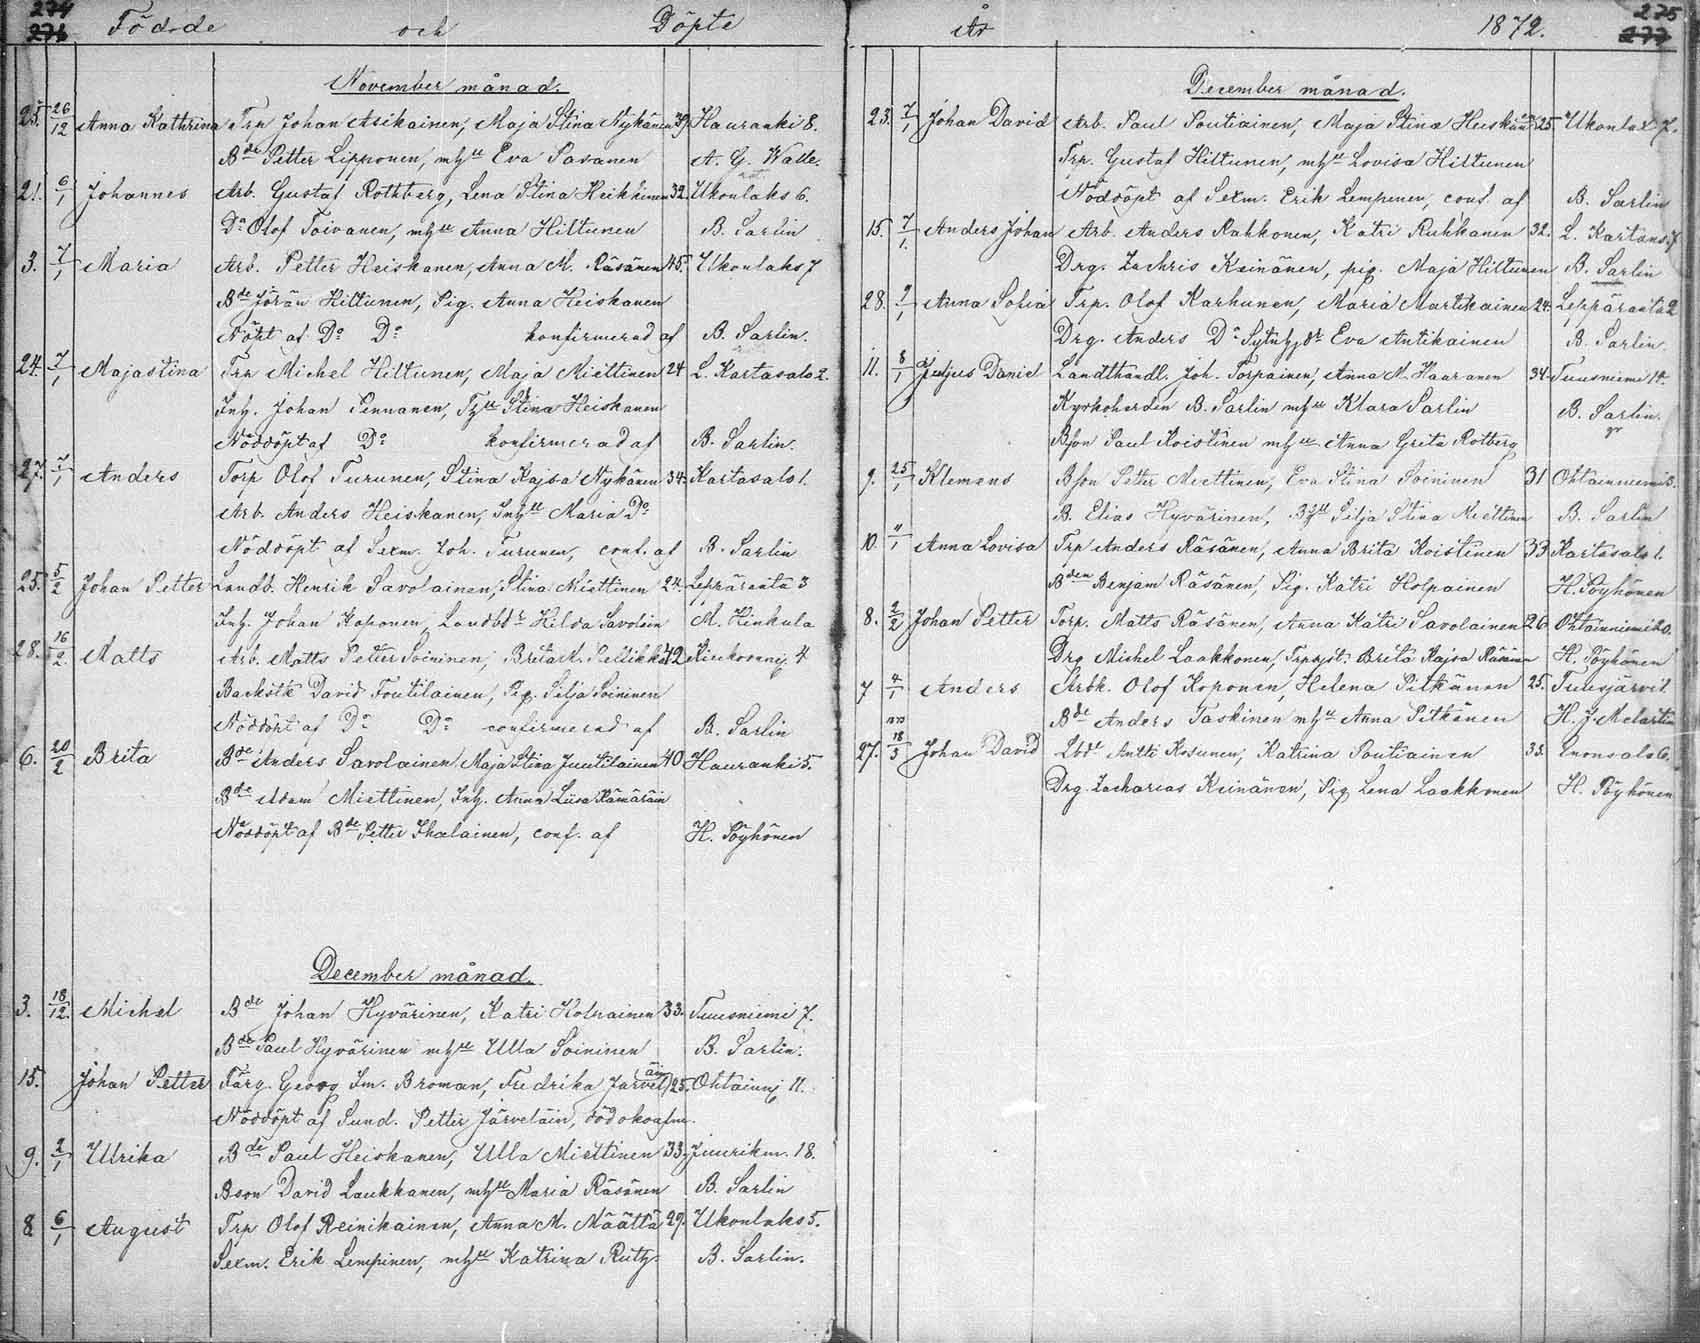 274
276
Födde och Döpte
November månad.
25. 26/12 Anna Kathrina Trp Johan Asikainen, Maja Stina Nykänen 39. Hauranki 8.
Bde Petter Lipponen, mhu Eva Pasanen A. G. Walle.
21. 6/1 Johannes Arb. Gustaf Rothberg, Lena Stina Heikkinen 32. Ukonlaks 6.
Do Olof Toivanen, mhu Anna Hiltunen B. Sarlin
3. 7/1 Maria Arb. Petter Heiskanen, Anna M. Räsänen 45. Ukonlaks 7
Bde Jöran Hiltunen, Pig. Anna Heiskanen
Nöpt af Do Do konfirmerad af B. Sarlin.
24. 7/1 Majastina Trp Michel Hiltunen, Maja Miettinen 24 L. Kartasalo 2.
Inh. Johan Pennanen, Stina Heiskanen
Nöddöpt af Do konfirmerad af B. Sarlin.
27. 7/1 Anders Torp Olof Turunen, Stina Kajsa Nykänen 34. Kartasalo 1.
Arb. Anders Heiskanen, Inhu Maria Do
Nöddöpt af Sexm. Joh. Turunen, conf. af B. Sarlin
25. 5/2 Johan Petter Landb. Henrik Savolainen, Stina Miettinen 24. Lepräranta 3
Inh. Johan Koponen, Landbdr Hilda Savolain M. Hinkula
28. 16/2 Matts Arb. Matts Petter Soininen, Brita M. Pellikka 42 4
Backstk David Toutilainen, Pig. Silja Soininen
Nöddöpt af Do Do confirmerad af B. Sarlin
6. 20/2 Brita Bde Anders Savolainen, Maja Stina Juutilainen 40 Hauranki 5.
Bde Adam Miettinen, Inh. Anna Liisa Hämäläin
Nöddöpt af Bde Petter Ihalainen, conf. af H. Pöyhönen
December månad.
3. 18/12 Michel Bde Johan Hyvärinen, Katri Holpainen 33. Tuusniemi 7.
Bde Paul Hyvärinen mhu Ulla Soininen B. Sarlin.
15. Johan Petter Färg. Georg Im. Broman, Fredrika Järveläin 25. Ohtainnj 11.
Nöddöpt af Sund. Petter Järveläin, död okonfm.
9. 2/1 Ulrika Bde Paul Heiskanen, Ulla Miettinen 33. Juurikm. 18.
Bson David Laukkanen, mhu Maria Räsänen B. Sarlin
8 6/1 August Trp Olof Reinikainen, Anna M. Määttä 29. Ukonlaks 5.
Sexm. Erik Lempinen, mhu Katrina Ruth B. Sarlin.
275
277
År 1872.
December månad.
23. 7/1 Johan David Arb. Paul Poutiainen, Maja Stina Heiskanen 25 Ukonlax 7.
Trp. Gustaf Hiltunen, mhu Lovisa Hiltunen
Nöddöpt af Sexm. Erik Lempinen, conf. af B. Sarlin
15. 7/1. Anders Johan Arb. Anders Rahkonen, Katri Ruhkanen 32. L. Kartans. 7
Drg. Zachris Keinänen, pig. Maja Hiltunen B. Sarlin
28. 9/1 Anna Sofia Trp. Olof Karhunen, Maria Martikainen 24. Leppäranta 2
Drg. Anders Do Eva Antikainen B. Sarlin.
11. 8/1 Julius Daniel Landthandl. Joh. Torpainen, Anna M. Haaranen 34. Tuusniemi 14.
Kyrkoherden B. Sarlin mhu Klara Sarlin B. Sarlin.
Bson Paul Koistinen mhu Anna Greta Rotberg
9. 25/1 Klemens Bson Petter Miettinen, Eva Stina Soininen 31 Ohtainniemi 3.
B. Elias Hyvärinen, Silja Stina Miettinen B. Sarlin
10. "/1 Anna Lovisa Trp Anders Räsänen, Anna Brita Koistinen 33 Kartasalo 1.
Bden Benjam Räsänen, Pig. Katri Holpainen H. Pöyhönen
8. 2/2 Johan Petter Torp. Matts Räsänen, Anna Katri Savolainen 26 Ohtainniemi 20.
Drg Michel Laakkonen, Brita Kajsa Räsänen H. Pöyhönen
7 4/1 Anders Arbk. Olof Koponen, Helena Pitkänen 25. Tuusjärvi 1.
Bde Anders Taskinen mhu Anna Pitkänen H. J. Melartin
27. 1873 18/3 Johan David Lbde Antti Kosunen, Katrina Poutiainen 33. Enonsalo 6.
Drg. Zacharias Keinänen, Pig Lena Laakkonen H. Pöyhönen